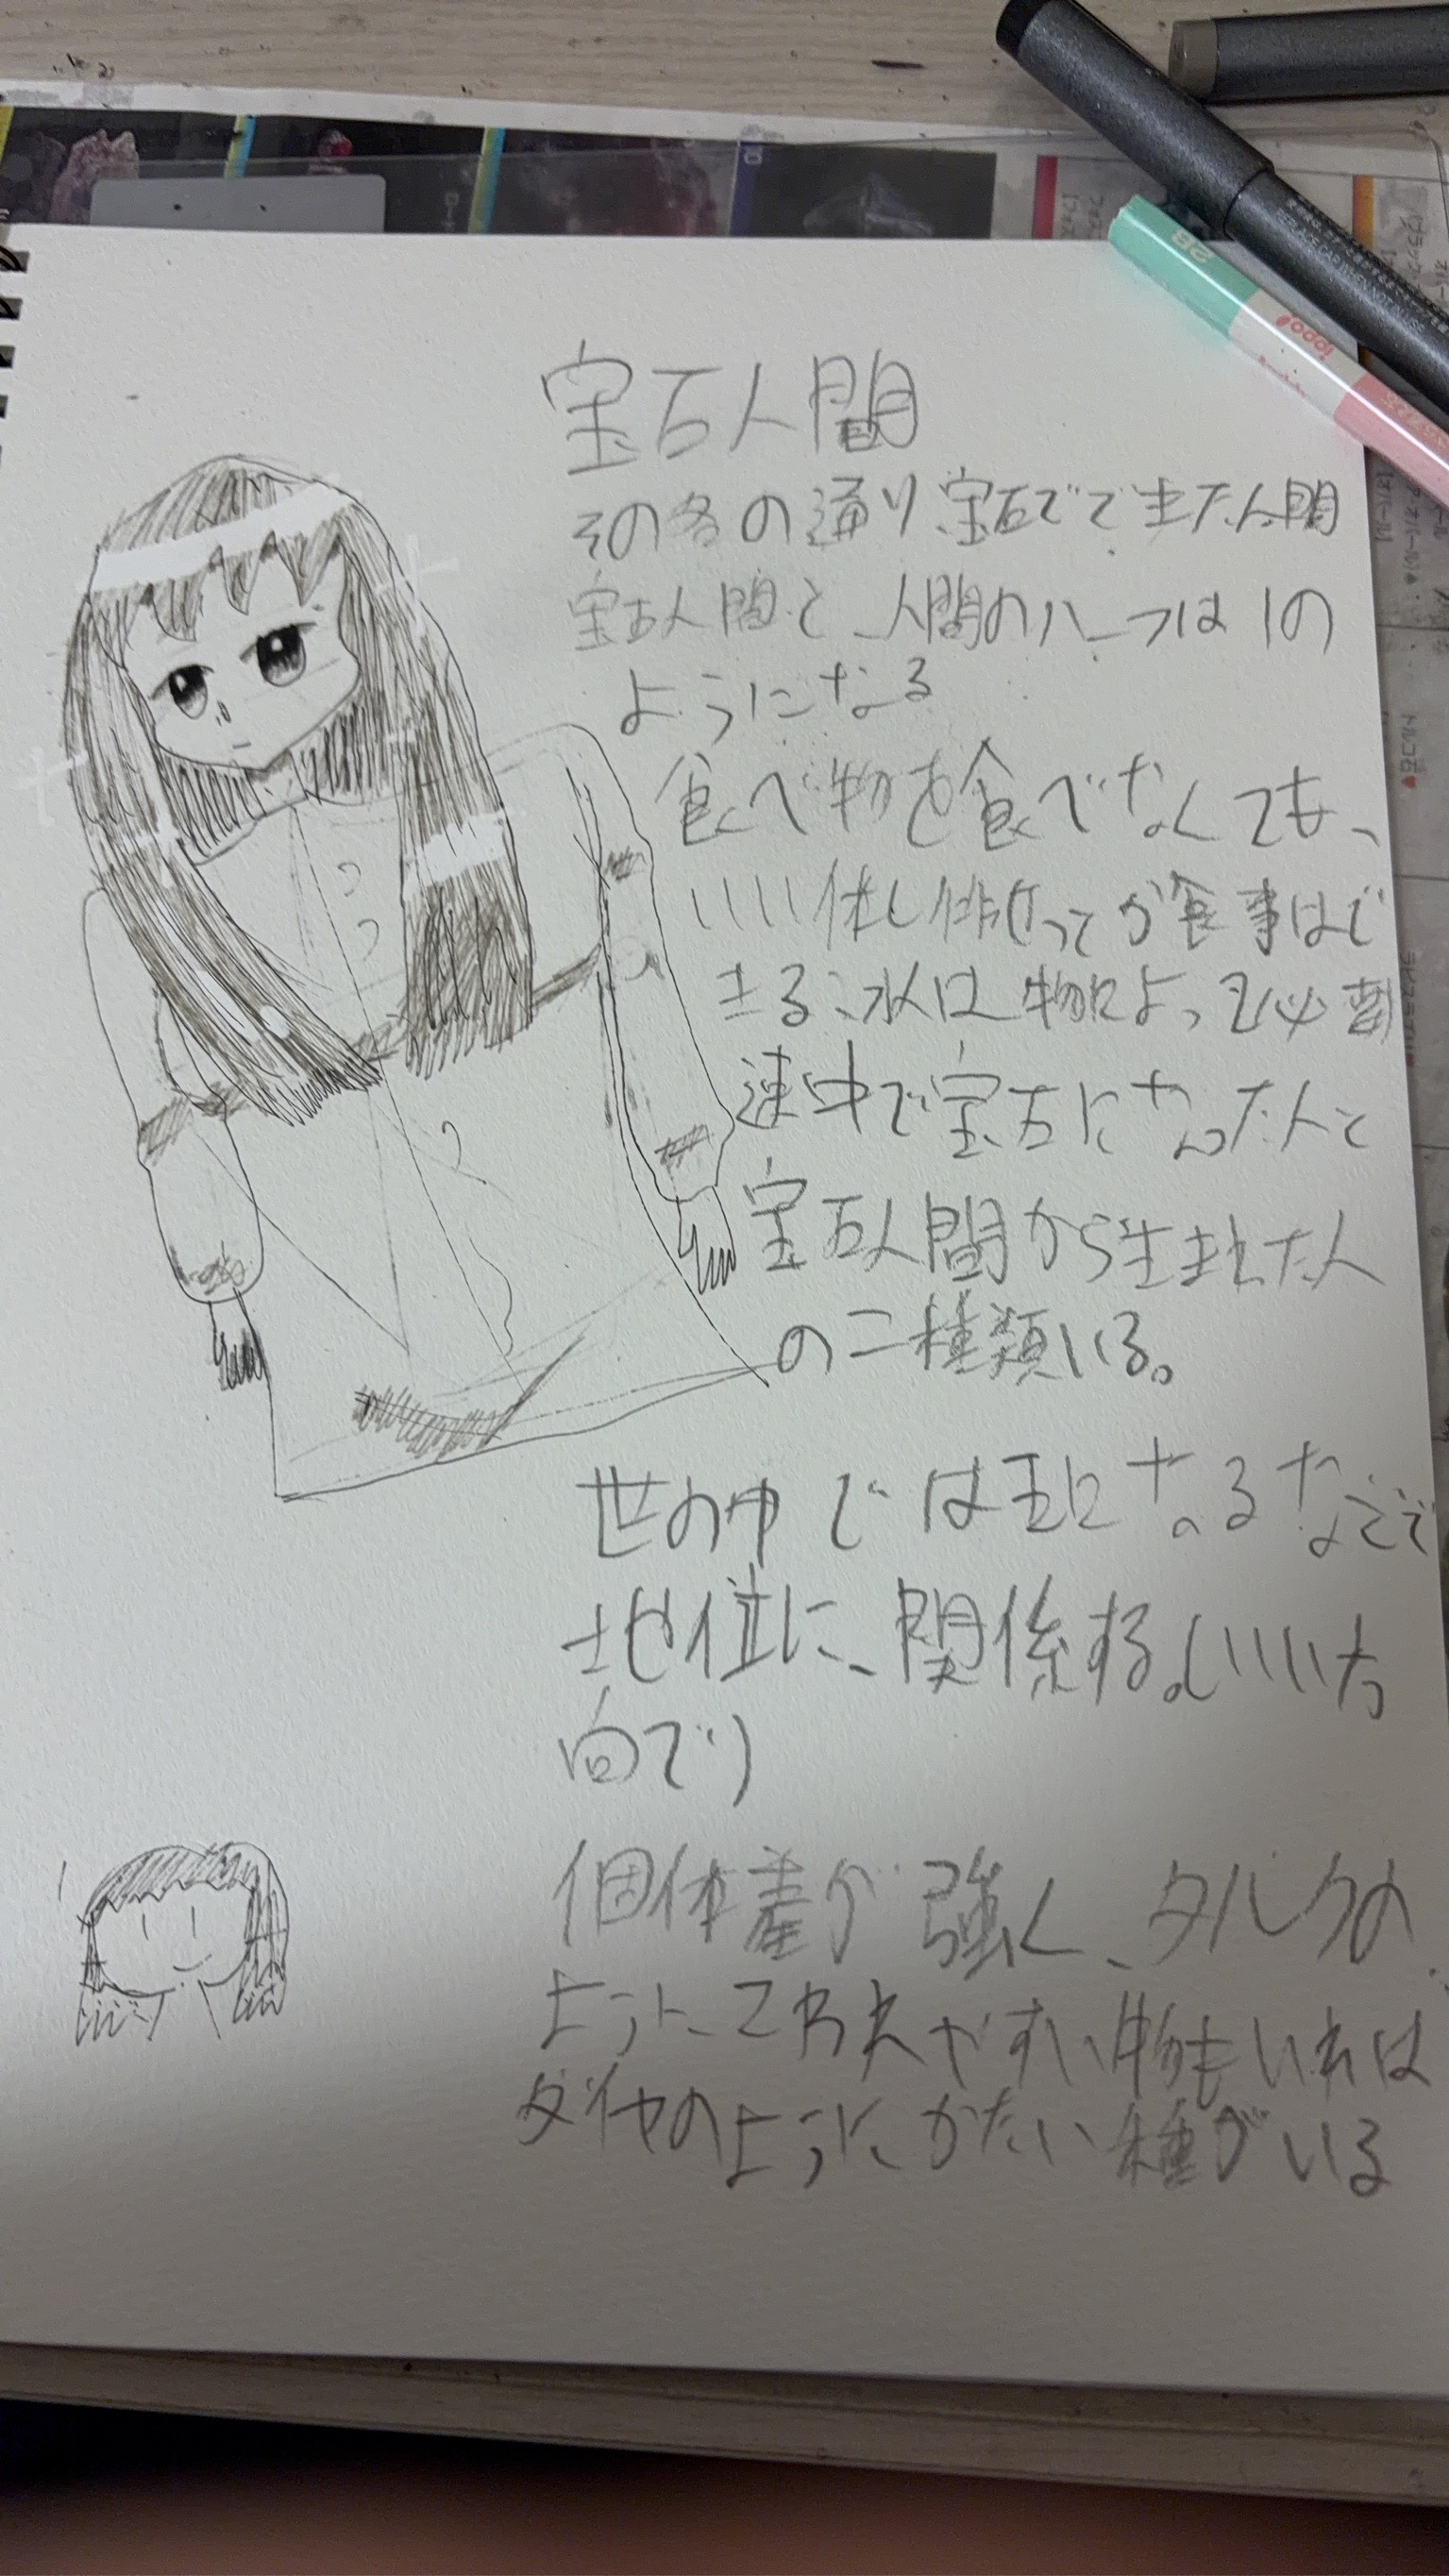 宝石人間
その名の通り宝石でできた人間
宝石人間と人間のハーフは1の
ようになる
食べ物を食べなくても、
いいい体し 食事はで
きる、水は物によって必要
途中で宝石になった人と
宝石人間から生まれた人
の二種類いる。
世の中では王になるなどで
地位に、関係する。(いいい方
向で)
1
個体差が強く、タルクの
ようにやすい物もいれば
ダイヤのようにかたい種がいる
2B
ippo!
トルコ石